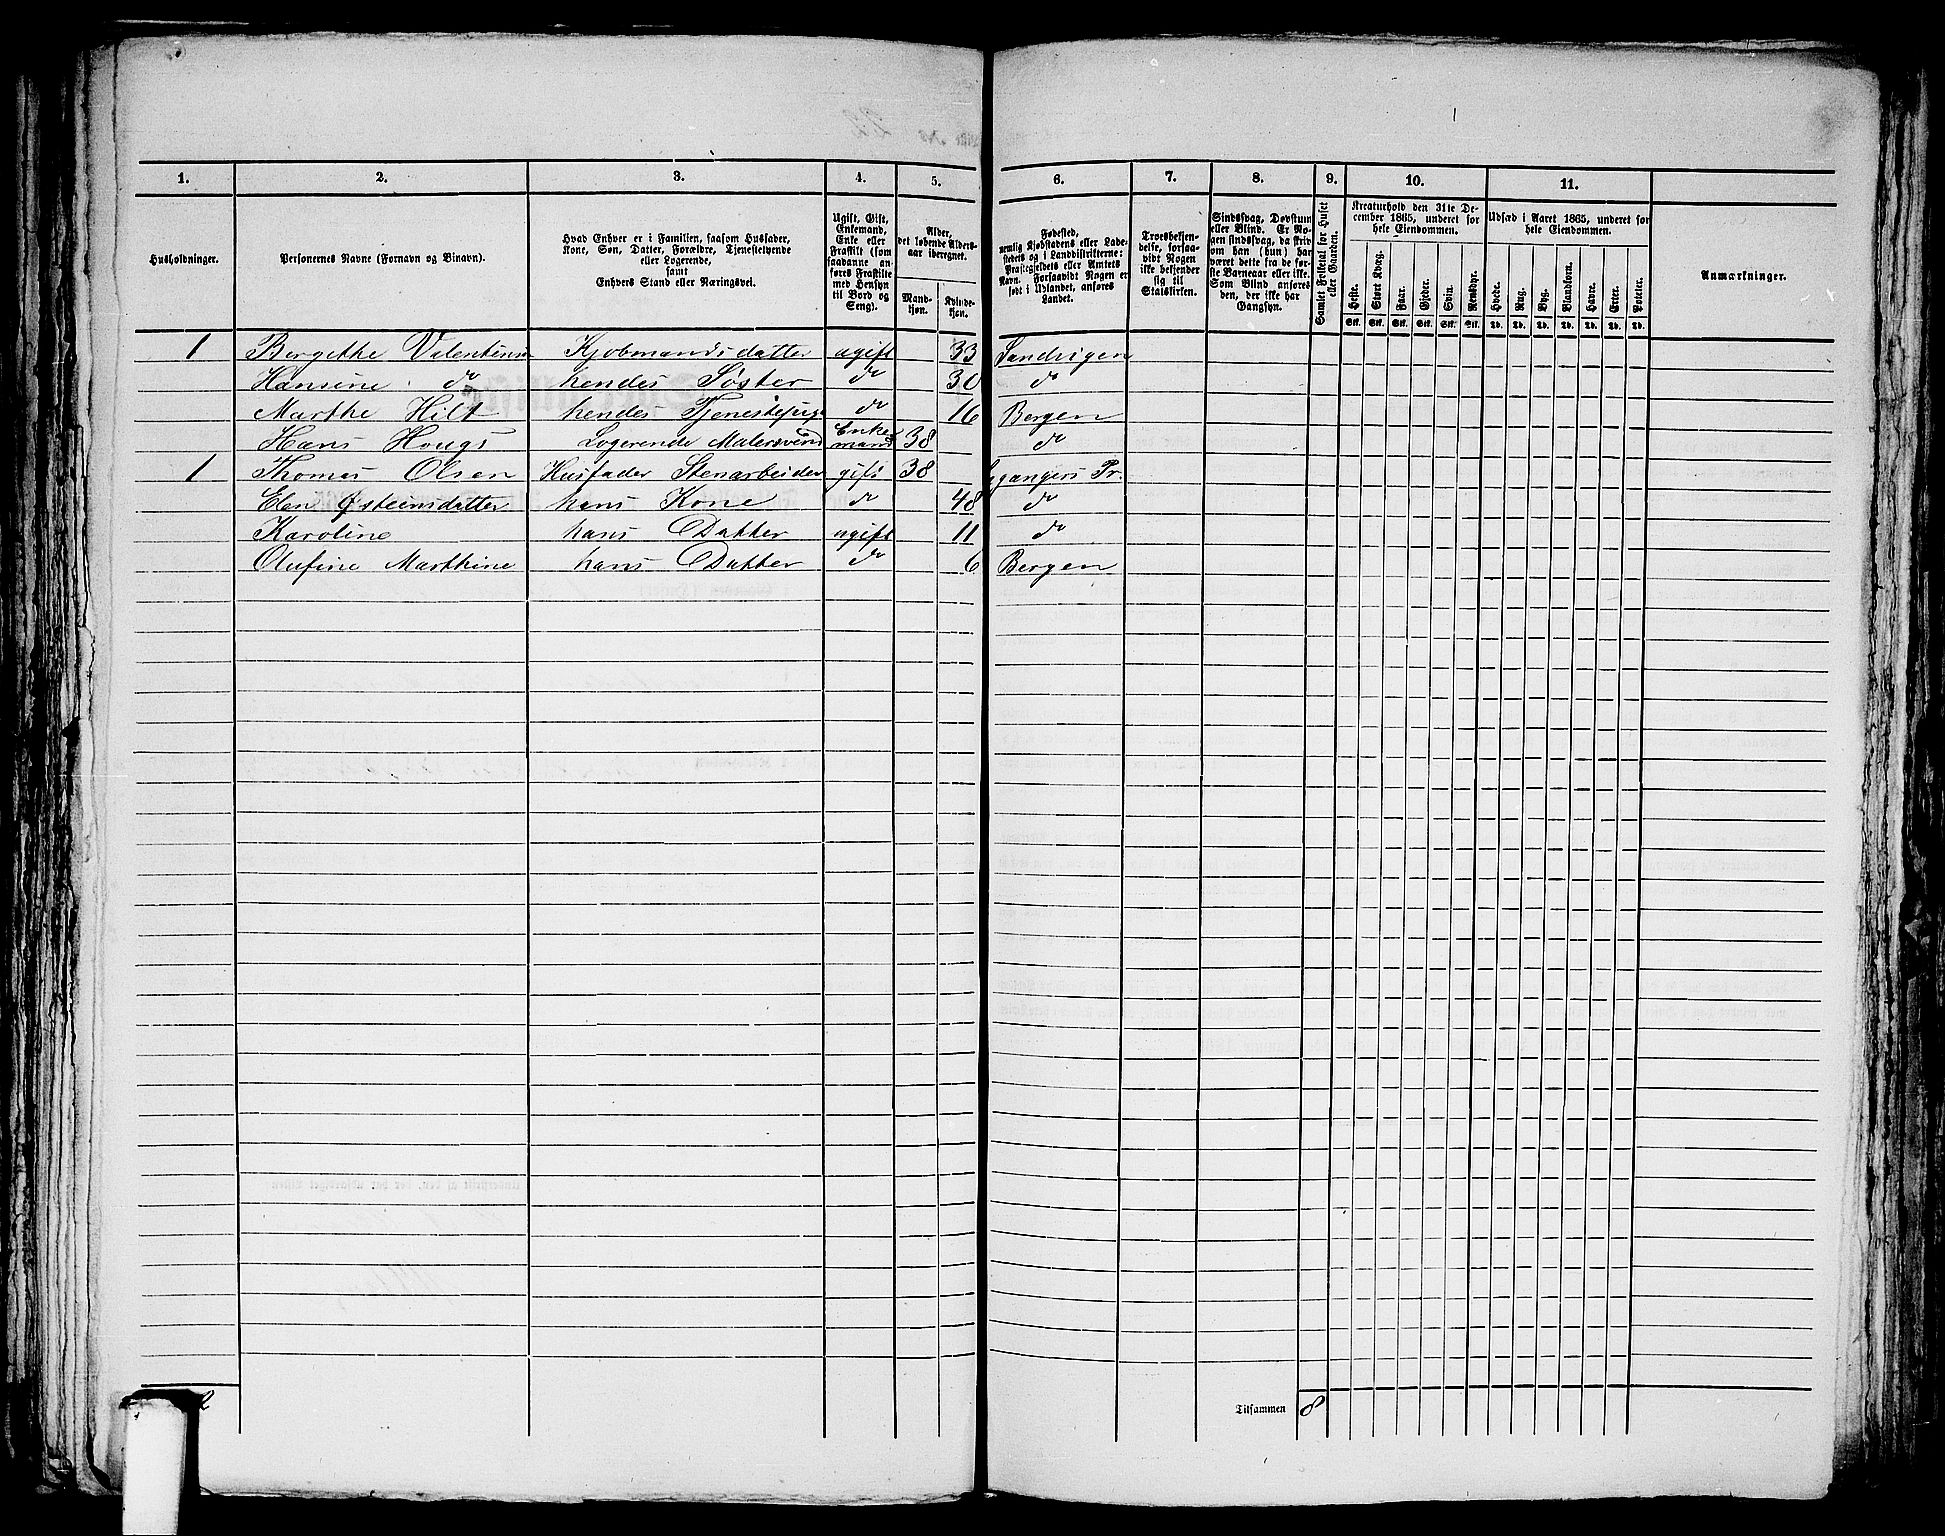 1. 2. 3. 4. 5. 6. 7. 8. 9. 10. 11.
Husholdninger.
Personernes Navne (Fornavn og Binavn).
Hvad Enhver er i Familien, saasom Husfader,
Kone, Søn, Datter, Forældre, Tjenestetyende
eller Logerende,
samt
Enhvers Stand eller Næringsvei.
Ugift, Gift,
Enkemand,
Enke eller
Fraskilt (som
saadanne an-
føres Fraskilte
med Hensyn
til Bord og
Seng).
Alder,
det løbende Alders-
aar iberegnet.
Mand-
kjøn.
Kvinde-
kjøn.
Fødested,
nemlig Kjøbstadens eller Lade-
stedets og i Landdistrikterne:
Præstegjeldets eller Amtets
Navn. Forsaavidt Nogen er
født i Udlandet, anføres
Landet.
Troesbekjen-
delse, forsaa-
vidt Nogen
ikke bekjender
sig til
Statskirken.
Sindssvag, Døvstum
eller Blind. Er No-
gen sindssvag, da skriv
om han (hun) har
været dette fra de før-
ste Barneaar eller ikke.
Som Blind anføres
den, der ikke har
Gangsyn.
Samlet Folketal for Huset
eller Gaarden.
Kreaturhold den 31te De-
cember 1865, underet for
hele Eiendommen.
Heste. Stort Kvæg. Faar. Gjeder. Svin. Rensdyr.
Stk. Stk. Stk. Stk. Stk. Stk.
Udsæd i Aaret 1865, underet for
hele Eiendommen.
Hvede. Rug. Byg. Blandkorn. Havre. Erter. Poteter.
Td. Td. Td. Td. Td. Td. Td.
Anmærkninger.
1 Bergethe Valentinsen Kjøbmandsdatter ugift 33 Sandvigen
Hansine do hendes Søster do 30 do
Marthe Hilt hendes Tjenestepige do 16 Bergen
Hans Hougs Logerende Malersvend Enkemand 38 do
1 Thomas Olsen Husfader Stenarbeider gift 38 Pr.
Elen Østeensdatter hans Kone do 48 do
Karoline hans Datter ugift 11 do
Olufine Marthine hans Datter do 6 Bergen
2 Tilsammen 8